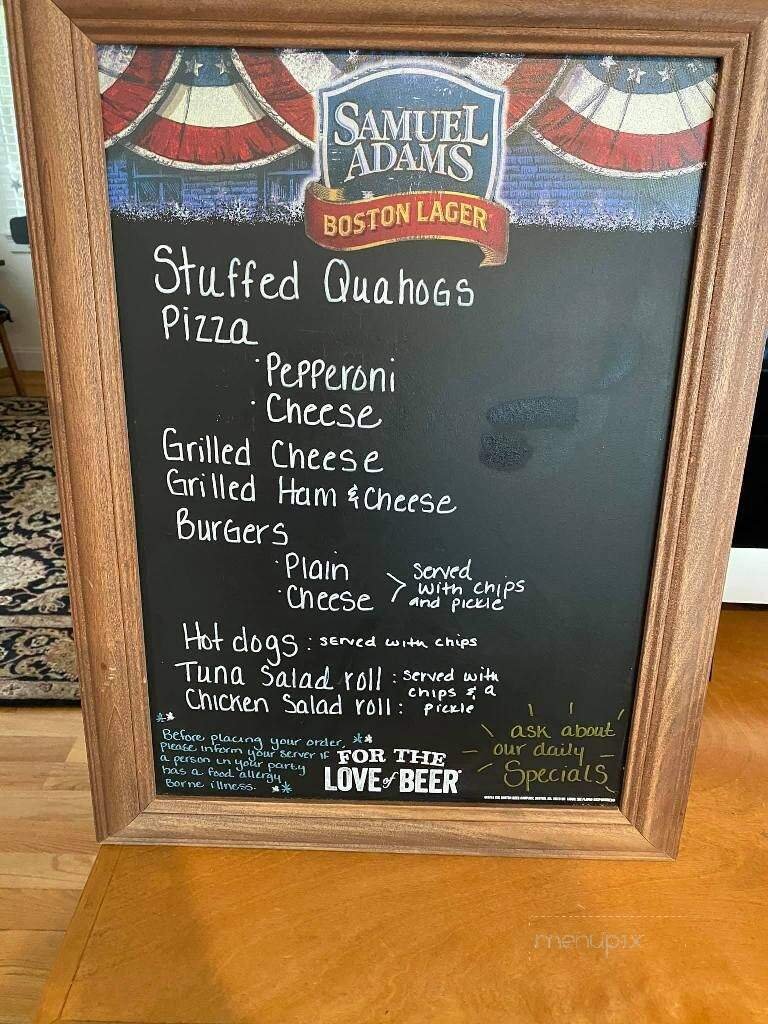 SAMUEL
ADAMS
BOSTON LAGER
Stuffed Quahogs
Pizza
· Pepperoni
· Cheese
Grilled Cheese
Grilled Ham & Cheese
Burgers
· Plain
· Cheese
> Served
with chips
and pickle
Hot dogs : served with chips
Tuna Salad roll : served with
chips & a
Chicken Salad roll : pickle
Before placing your order,
please inform your server if
a person in your party
has a food allergy
Borne illness.
FOR THE
LOVE of BEER
ask about
our daily
Specials
menupix